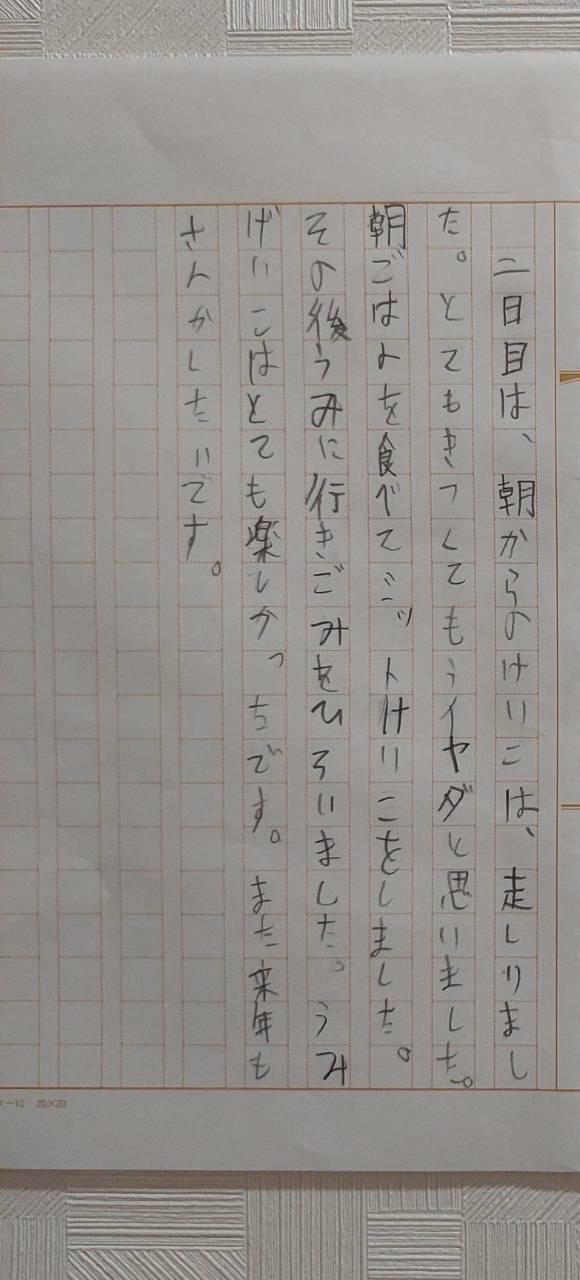 二日目は、朝からのけいこは、走しりまし
た。とてもきつくてもうイヤダと思いました。
朝ごはんを食べてミットけいこをしました。
その後うみに行きごみをひろいました。うみ
げいこはとても楽しかっちです。また来年も
さんかしたいです。
ケー10 20×20